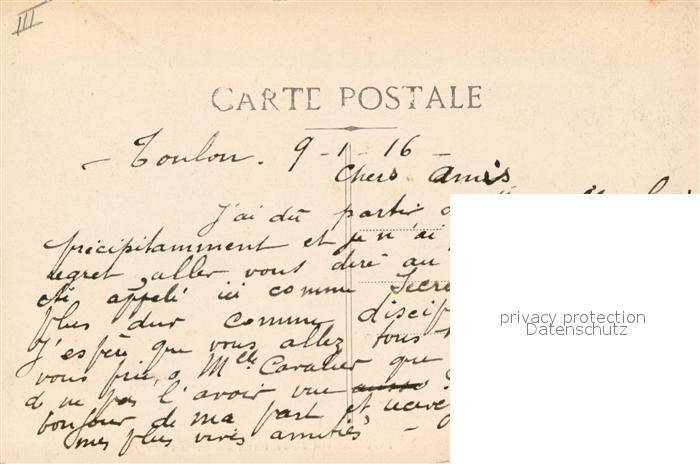 III
CARTE POSTALE
- Toulon. 9-1-16-
Chers Amis
J'ai dû partir
précipitamment et je n'ai
regret, aller vous dire au
été appelé ici comme Secré
plus dur comme discip
J'espère que vous allez tous
vous prie, à Mlle Cavalier que
de ne pas l'avoir vue
bonjour de ma part et recev
mes plus vives amitiés -
privacy protection
Datenschutz